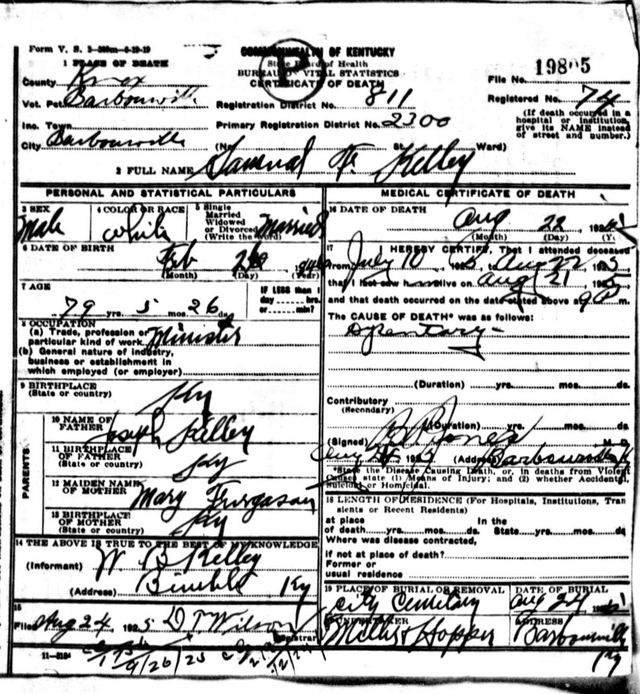 Form V. S. 19
COMMONWEALTH OF KENTUCKY
State Board of Health
BUREAU OF VITAL STATISTICS
CERTIFICATE OF DEATH
1 PLACE OF DEATH
County Knox
Vot. Pct. Barbourville
Inc. Town
City Barbourville
Registration District No. 811
Primary Registration District No. 2300
(No. St. Ward)
File No. 19805
Registered No. 74
(If death occurred in a
hospital or institution,
give its NAME instead
of street and number.)
2 FULL NAME Samual F. Kelley
PERSONAL AND STATISTICAL PARTICULARS
3 SEX
Male
4 COLOR OR RACE
White
5 Single
Married
Widowed
or Divorced
(Write the word)
Married
6 DATE OF BIRTH
Feb
(Month) (Day) (Year)
7 AGE
79 yrs. 5 mos. 26 ds.
IF LESS than 1
day ---- hrs.
or ---- min?
8 OCCUPATION
(a) Trade, profession or
particular kind of work Minister
(b) General nature of industry,
business or establishment in
which employed (or employer)
9 BIRTHPLACE
(State or country)
Ky
PARENTS
10 NAME OF
FATHER
Joseph Kelley
11 BIRTHPLACE
OF FATHER
(State or country)
Ky
12 MAIDEN NAME
OF MOTHER
Mary Furgason
13 BIRTHPLACE
OF MOTHER
(State or country)
Ky
14 THE ABOVE IS TRUE TO THE BEST OF MY KNOWLEDGE
(Informant) W B Kelley
(Address) Bimble Ky
15
Filed Aug 24 1925 D T Wilson
Registrar
11-3184
9/26/25
MEDICAL CERTIFICATE OF DEATH
16 DATE OF DEATH
Aug 22 192
(Month) (Day) (Y
17 I HEREBY CERTIFY, That I attended deceased
from July 10 1925 Aug 22 1925
that I last saw him alive on Aug 21 1925
and that death occurred on the date stated above
The CAUSE OF DEATH* was as follows:
Dysentary-
(Duration) yrs. mos. ds.
Contributory
(Secondary)
(Duration) yrs. mos. ds.
(Signed) Jones M. D.
(Address) Barbourville Ky
*State the Disease Causing Death, or, in deaths from Violent
Causes state (1) Means of Injury; and (2) whether Accidental,
Suicidal or Homicidal.
18 LENGTH OF RESIDENCE (For Hospitals, Institutions, Tran
sients or Recent Residents)
at place
of death yrs. mos. ds.
In the
State yrs. mos. ds.
Where was disease contracted,
if not at place of death?
Former or
usual residence
19 PLACE OF BURIAL OR REMOVAL
City Cemetary
DATE OF BURIAL
Aug 24 192
UNDERTAKER
Hopper
ADDRESS
Barbourville
Ky